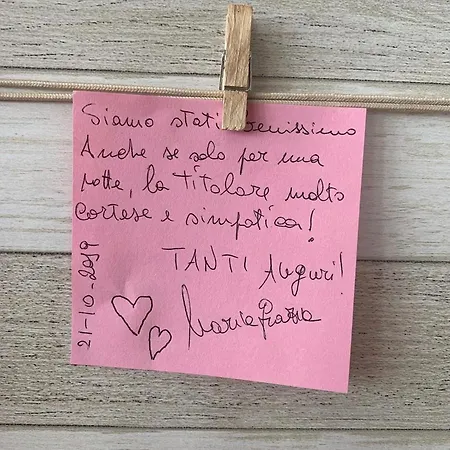 Siamo stati benissimo
Anche se solo per una
notte, la Titolare molto
cortese e simpatica!
TANTI Auguri!
Mariagrazia
21-10-2019